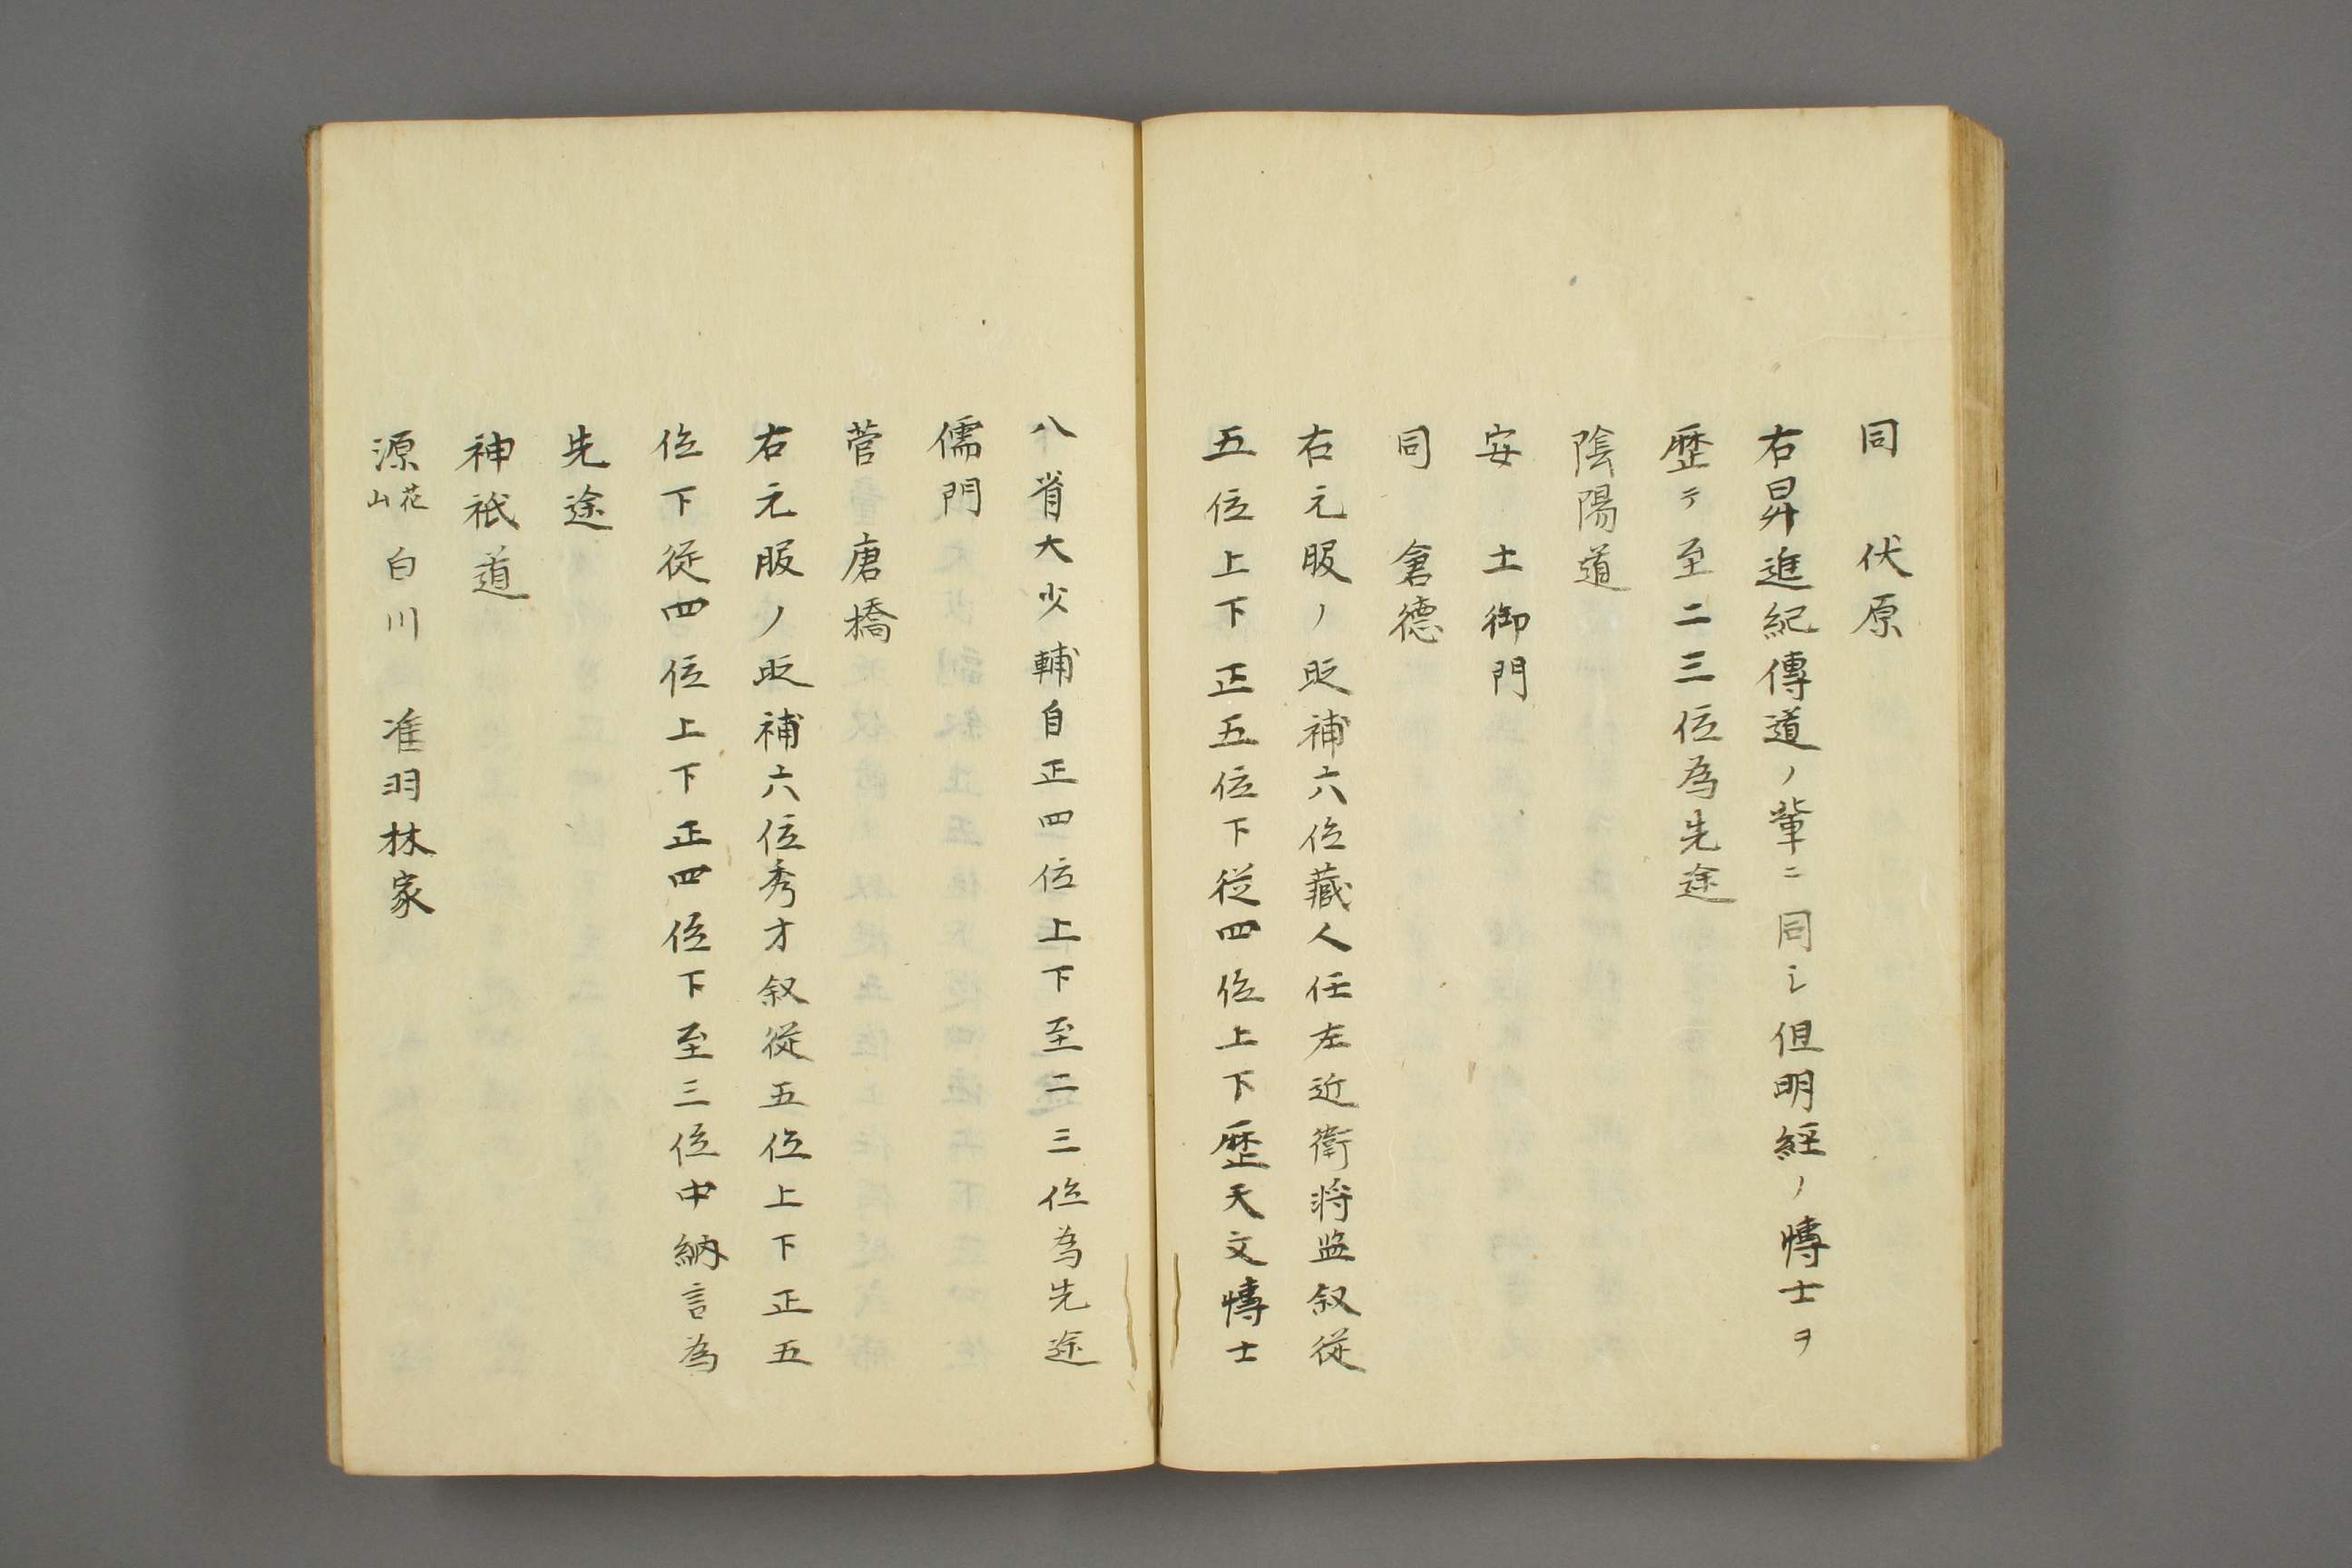 同　伏原
右昇進紀傳道ノ輩ニ同シ但明経ノ博士ヲ
歴テ至二三位為先途
陰陽道
安　土御門
同　倉德
右元服ノ昵補六位藏人任左近衛将監叙従
五位上下正五位下従四位上下歴天文博士
八省大少輔自正四位上下至二三位為先途
儒門
菅　唐橋
右元服ノ昵補六位秀才叙従五位上下正五
位下従四位上下正四位下至三位中納言為
先途
神祇道
源花山　白川　准羽林家